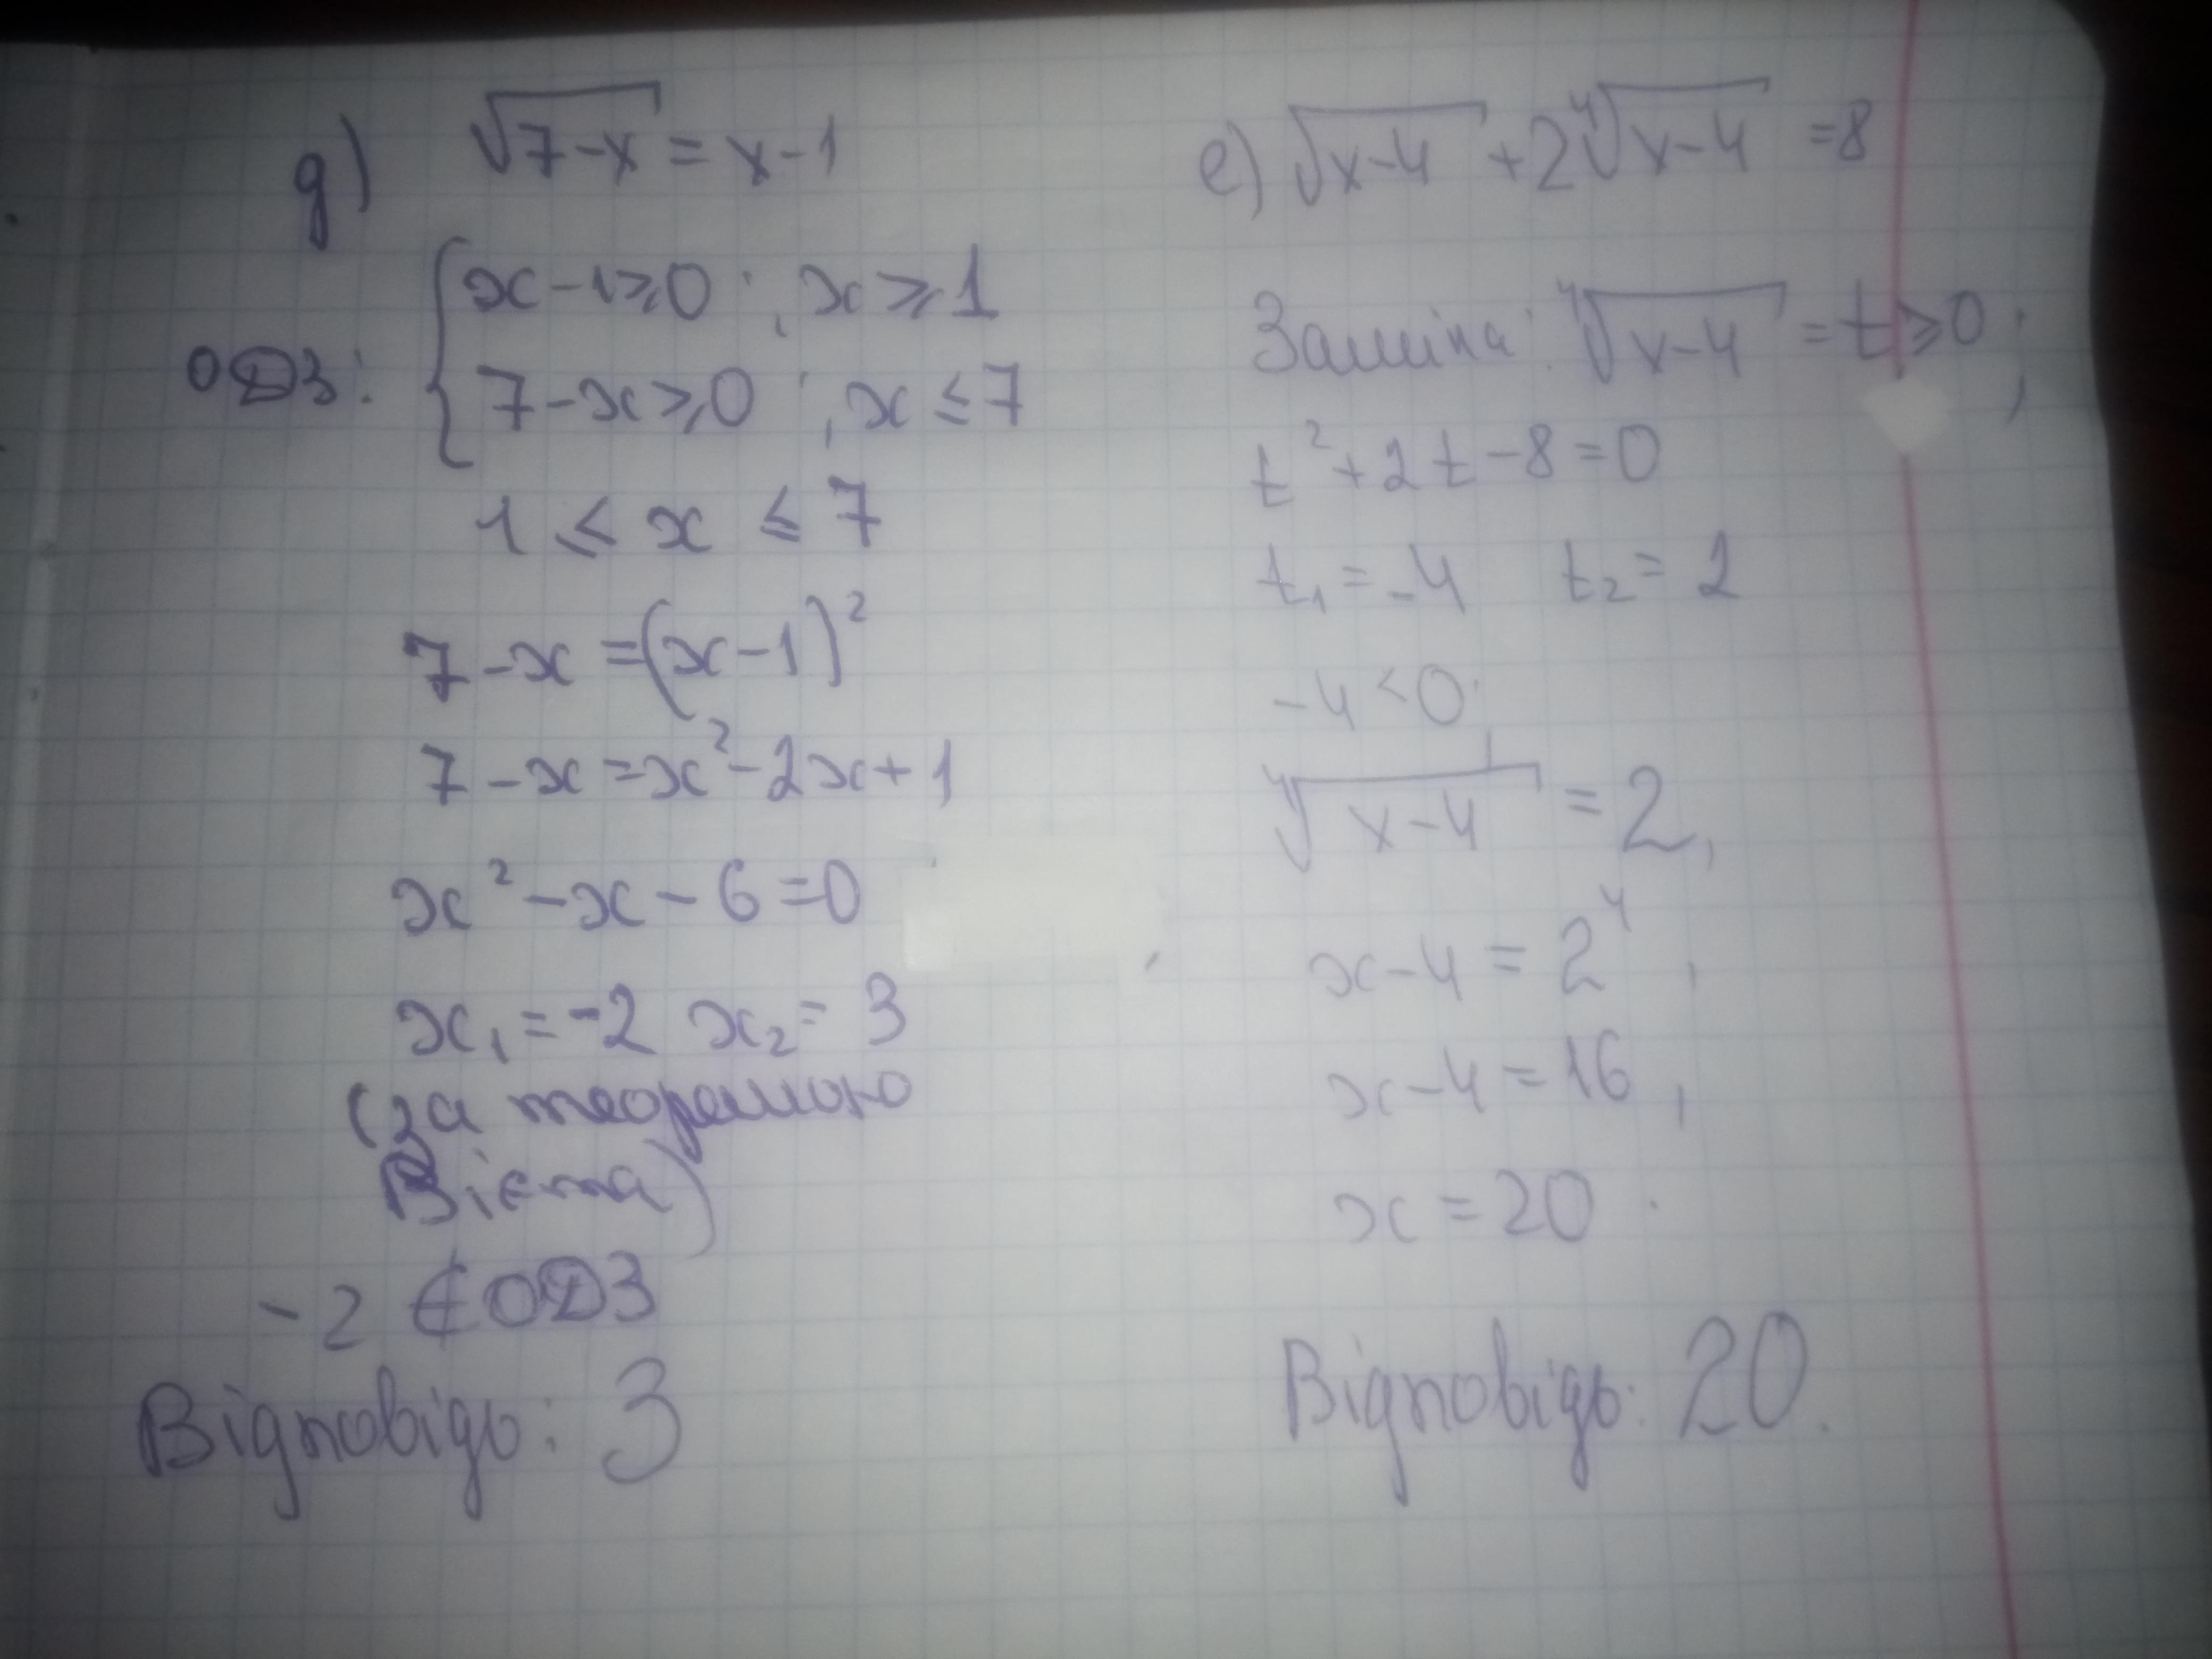 д) √7-x = x-1
ОДЗ: { x-1≥0; x≥1
7-x≥0; x≤7
1 ≤ x ≤ 7
7-x=(x-1)²
7-x=x²-2x+1
x²-x-6=0
x₁=-2 x₂=3
(за теоремою
Вієта)
-2 ∉ ОДЗ
Відповідь: 3
е) √x-4 + 2⁴√x-4 =8
Заміна: ⁴√x-4 = t≥0;
t²+2t-8=0
t₁=-4 t₂=2
-4<0;
⁴√x-4 = 2,
x-4=2⁴,
x-4=16,
x=20.
Відповідь: 20.